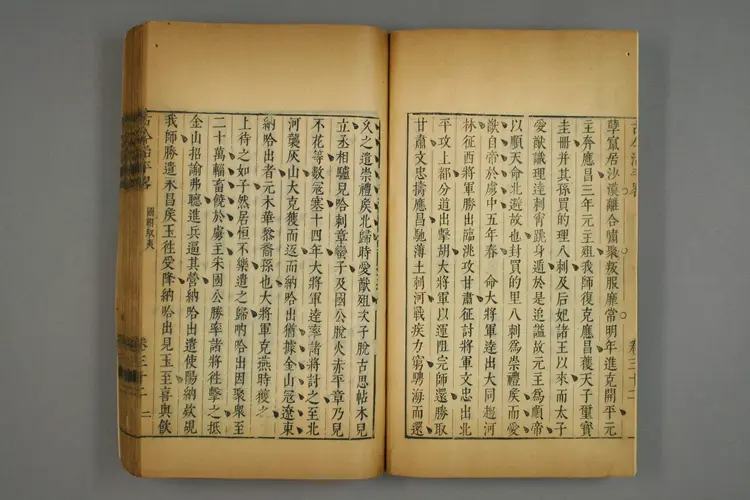 孽竄居沙漠離合嘯聚叛服靡常明年進克開平元
主奔應昌三年元主殂我師復克應昌獲天子璽寶
圭冊并其孫買的理八剌及后妃諸王以來而太子
愛猷識理達剌霄跳身遁於是追謚故元主為順帝
以順天命北避故也封買的里八剌為崇禮矦而愛
猷自帝於虜中五年春 命大將軍逹出大同趨河
林征西將軍勝出臨洮攻甘肅征討將軍文忠出北
平攻上都分道出擊胡大將軍以運阻完師還勝取
甘肅文忠擣應昌馳薄土剌河戰疾力窮騁海而還
卷三十二
久之遣崇禮矦北歸時愛猷殂次子脫古思帖木兒
立丞相驢兒哈剌章蠻子及國公脫火赤平章乃兒
不花等數宼塞十四年大將軍逹率諸將討之至北
河襲灰山大克獲而還而納哈出猶據金山宼遼東
納哈出者元木華黎裔孫也大將軍克燕時獲之
上待之如子然居恒不樂遣之歸吶哈出因聚衆至
二十萬輜畜饒於虜主宋國公勝率諸將徃擊之抵
金山招諭弗聽進兵逼其營納哈出遣使陽納欸覘
我師勝遣永昌矦玉徃受降納哈出見玉至喜與飲
國朝馭夷
卷三十二 二